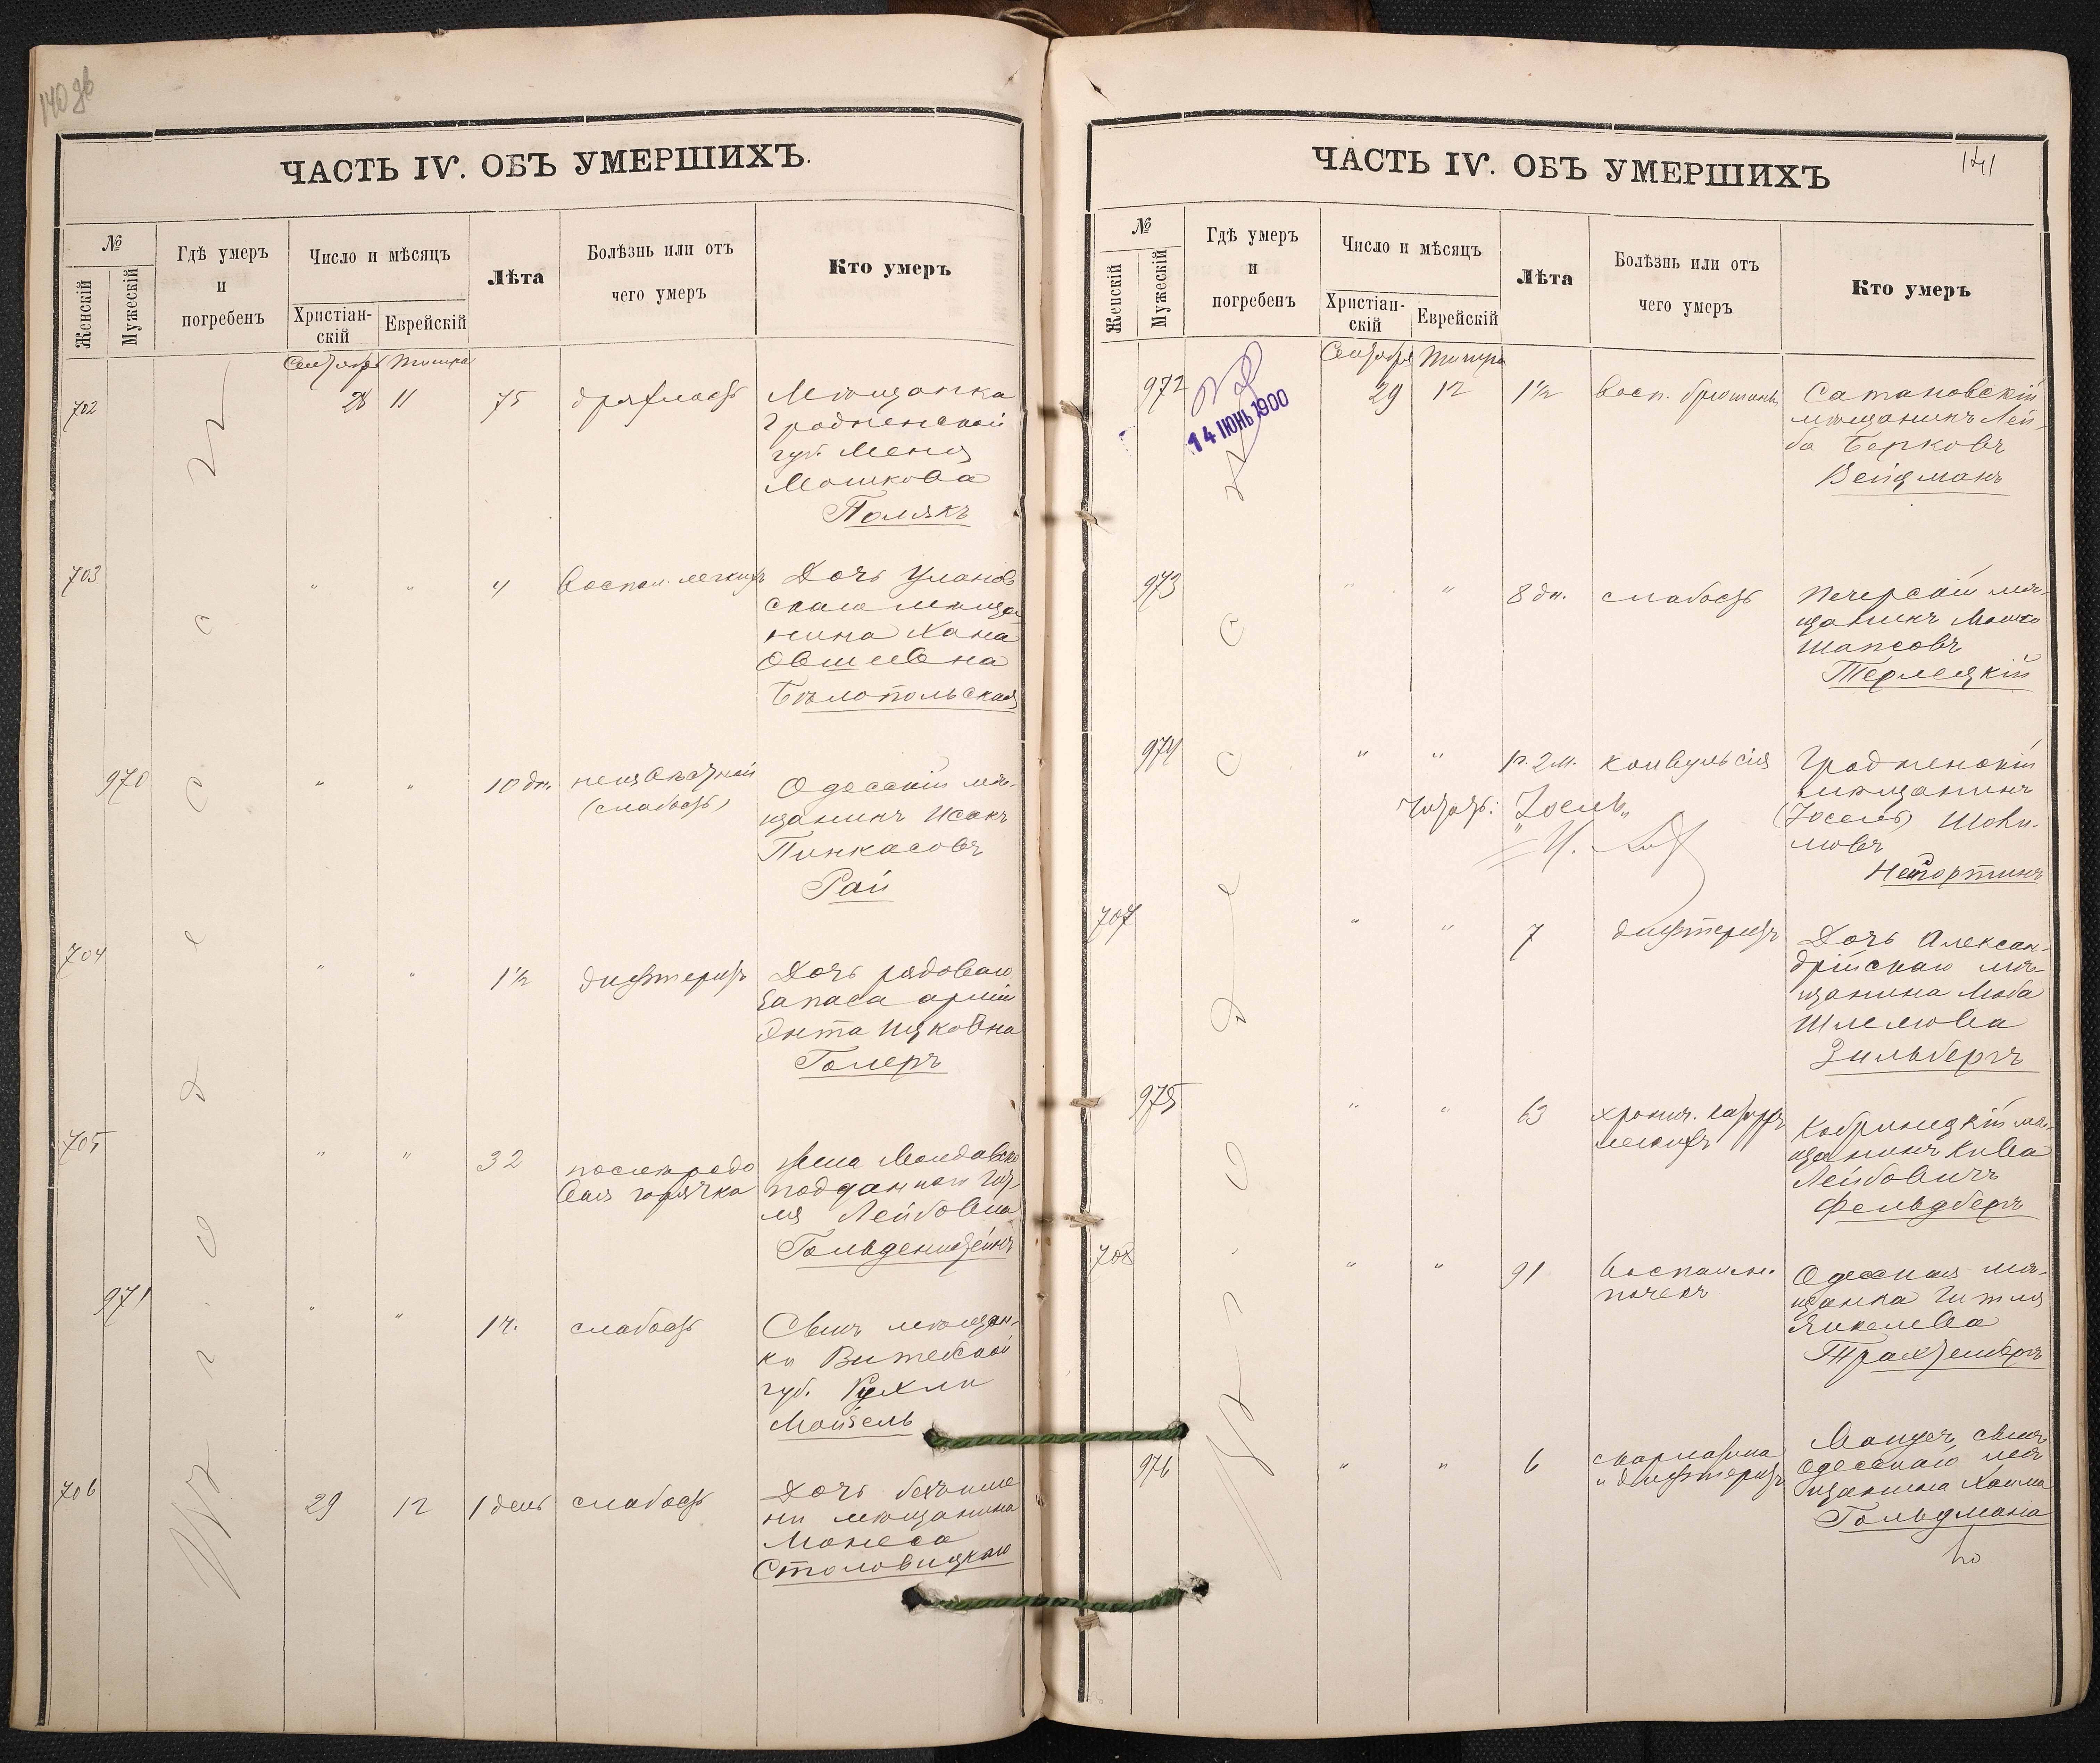 140 об
ЧАСТЬ IV. ОБЪ УМЕРШИХЪ.
№
Женскій
Мужескій
Гдѣ умеръ
и
погребенъ
Число и мѣсяцъ
Христіан-
скій
Еврейскій
Лѣта
Болѣзнь или отъ
чего умеръ
Кто умеръ
Сентября Тишра
702 28 11 75 дряхлость Мѣщанка
Гродненской
губ. Меня
Мошкова
Полякъ
703 " " 4 воспал. легкихъ Дочь Уланов
скаго мѣща
нина Хана
Овшіевна
Бѣлопольская
970 " " 10 дн. неизвѣстной Одесскій мѣ-
(слабость) щанинъ Исакъ
Пинкасовъ
Рай
704 " " 1½ дифтеритъ Дочь рядоваго
запаса арміи
Энта Ицковна
Голеръ
705 " " 32 послѣродо Жена Молдавск
вая горячка подданнаго
Лейбовна
Гольденштейнъ
971 " " 1 ч. слабость Сынъ мѣщан-
ки Витебской
губ. Рухли
Мойзель
706 29 12 1 день слабость Дочь
мѣщанина
Монеса
Столовицкаго
Одесса
141
ЧАСТЬ IV. ОБЪ УМЕРШИХЪ
№
Женскій
Мужескій
Гдѣ умеръ
и
погребенъ
Число и мѣсяцъ
Христіан-
скій
Еврейскій
Лѣта
Болѣзнь или отъ
чего умеръ
Кто умеръ
Сентября Тишра
14 ІЮНЬ 1900
972 29 12 1½ Восп. брюшины Сатановскій
мѣщанинъ Лей-
ба Берковъ
Вейцманъ
973 " " 8 дн. слабость Печерскій мѣ-
щанинъ Мошко
Шапсовъ
Терлецкій
974 " " 1 г. 2 м. конвульсія Гродненскій
мѣщанинъ
читать: "Іосель" (Іосель) Шови-
мовъ
707 " " 7 дифтеритъ Дочь Алексан-
дрійскаго мѣ-
щанина Люба
Шлемова
Зильбергъ
975 " " 63 хронич. катарръ Кобринецкій мѣ-
легкихъ щанинъ Кива
Лейбовичъ
Фельдбергъ
708 " " 91 Воспален. Одесская мѣ-
почекъ щанка Гитля
Янкелева
Трахтенбергъ
976 " " 6 скарлатина сынъ
и дифтеритъ Одесскаго мѣ
щанина Хаима
Гольдмана
Одесса